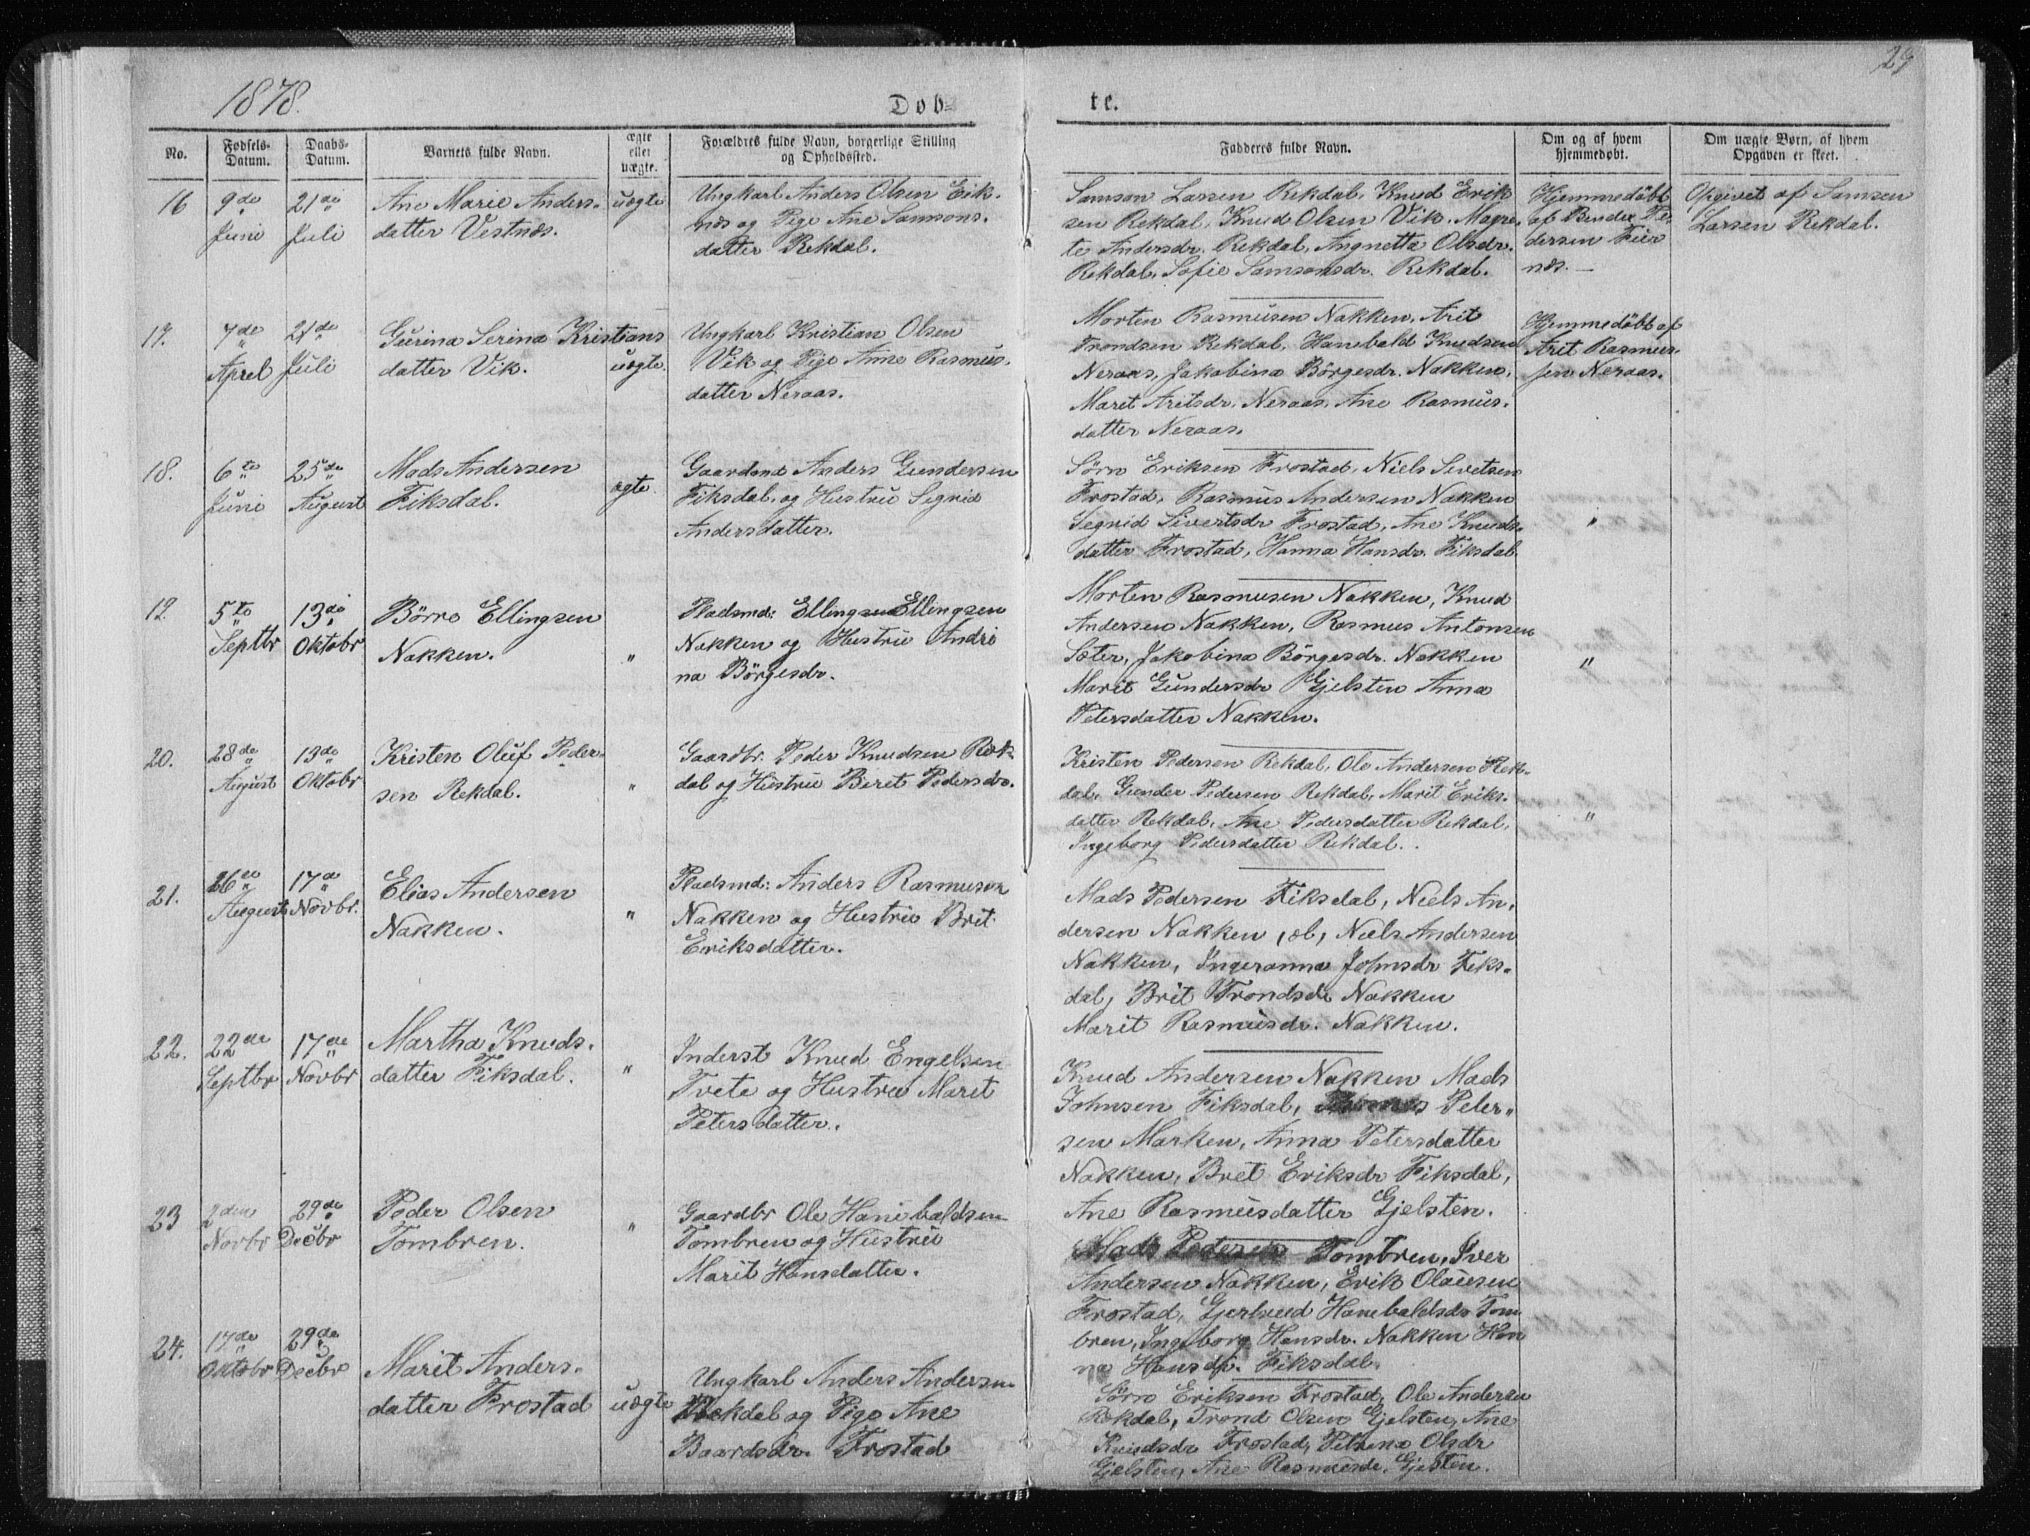 29
1878.
Døb- te.
No.
Fødsels-Datum.
Daabs-Datum.
Barnets fulde Navn.
ægte eller uægte.
Forældres fulde Navn, borgerlige Stilling og Opholdssted.
Fadderes fulde Navn.
Om og af hvem hjemmedøbt.
Om uægte Børn, af hvem Opgaven er skeet.
16
9de Juni
21de Juli
Ane Marie Anders-
datter Vestnæs.
uægte
Ungkarl Anders Olsen Eik-
næs og Pige Ane Samsons-
datter Rekdal.
Samson Larsen Rekdal, Knud Erik
sen Rekdal, Knud Olsen Vik, Magre-
te Andersdr. Rekdal, Angnetta Olsdr.
Rekdal, Sofie Samsonsdr. Rekdal.
Hjemmedöbt
af Bendix Pe-
dersen Feir
næs.
Opgivet af Samsen
Larsen Rekdal.
17.
7de Aprel
21de Juli
Gurina Serina Kristians
datter Vik.
uægte
Ungkarl Kristian Olsen
Vik og Pige Anne Rasmus-
datter Neraas.
Morten Rasmusen Nakken, Arit
Trondsen Rekdal, Hanebald Knudsen
Neraas, Jakobina Börgesdr. Nakken,
Marit Aritsdr. Neraas, Ane Rasmus-
datter Neraas.
Hjemmedöbt af
Arit Rasmus-
sen Neraas.
18.
6te Juni
25de August
Mads Andersen
Fiksdal.
ægte
Gaardmd Anders Gundersen
Fiksdal, og Hustru Segrid
Andersdatter.
Sörn Eriksen Frostad, Niels Sivetsen
Frostad, Rasmus Andersen Nakken
Segrid Sivertsdr Frostad, Ane Knuds-
datter Frostad, Hanna Hansdr. Fiksdal.
"
19.
5te Septbr
13de Oktobr
Börre Ellingsen
Nakken.
"
Pladsmd: Elling Ellingsen
Nakken og Hustru Andri
na Börgesdr.
Morten Rasmusen Nakken, Knud
Andersen Nakken, Rasmus Antonsen
Sæter, Jakobina Börgesdr. Nakken
Marit Gundersdr Gjelsten Anna
Petersdatter Nakken.
"
20.
28de August
13de Oktobr
Kristen Oluf Peder-
sen Rekdal.
"
Gaardbr. Peder Knudsen Rek-
dal og Hustru Beret Pedersdr.
Kristen Pedersen Rekdal, Ole Andersen Rek-
dal, Gunder Pedersen Rekdal, Marit Eriks-
datter Rekdal, Ane Pedersdatter Rekdal,
Ingeborg Pedersdatter Rekdal.
"
21.
26de August
17de Novbr.
Elias Andersen
Nakken.
"
Pladsmd: Anders Rasmusen
Nakken og Hustru Brit
Eriksdatter.
Mads Pedersen Fiksdal, Niels An-
dersen Nakken, æl, Niels Andersen
Nakken, Ingeranna Johnsdr Fiks-
dal, Brit Trondsdr Nakken
Marit Rasmusdr. Nakken.
22.
22de Septbr
17de Novbr
Martha Knuds-
datter Fiksdal.
"
Inderst Knud Engelsen
Tvete og Hustru Marit
Petersdatter.
Knud Andersen Nakken Mads
Johnsen Fiksdal, Peter-
sen Marken, Anna Petersdatter
Nakken, Bret Eriksdr Fiksdal,
Ane Rasmusdatter Gjelsten.
23
2den Novbr
29de Decbr
Peder Olsen
Tombren.
"
Gaardbr Ole Hanibaldsen
Tombren og Hustru
Marit Hansdatter.
Mads Pedersen Tombren, Iver
Andersen Nakken, Erik Olausen
Frostad, Gjertrud Hanebaldsdr Tom
bren, Ingeborg Hansdr. Nakken Han
na Hansdr. Fiksdal.
24.
17de Oktobr
29de Decbr
Marit Anders-
datter Frostad
uægte
Ungkarl Anders Andersen
Rekdal og Pige Ane
Baardsdr. Frostad
Sörn Eriksen Frostad, Ole Andersen
Rekdal, Trond Olsen Gjelsten, Ane
Knudsdr Frostad, Petrina Olsdr
Gjelsten, Ane Rasmusdr. Gjelsten.